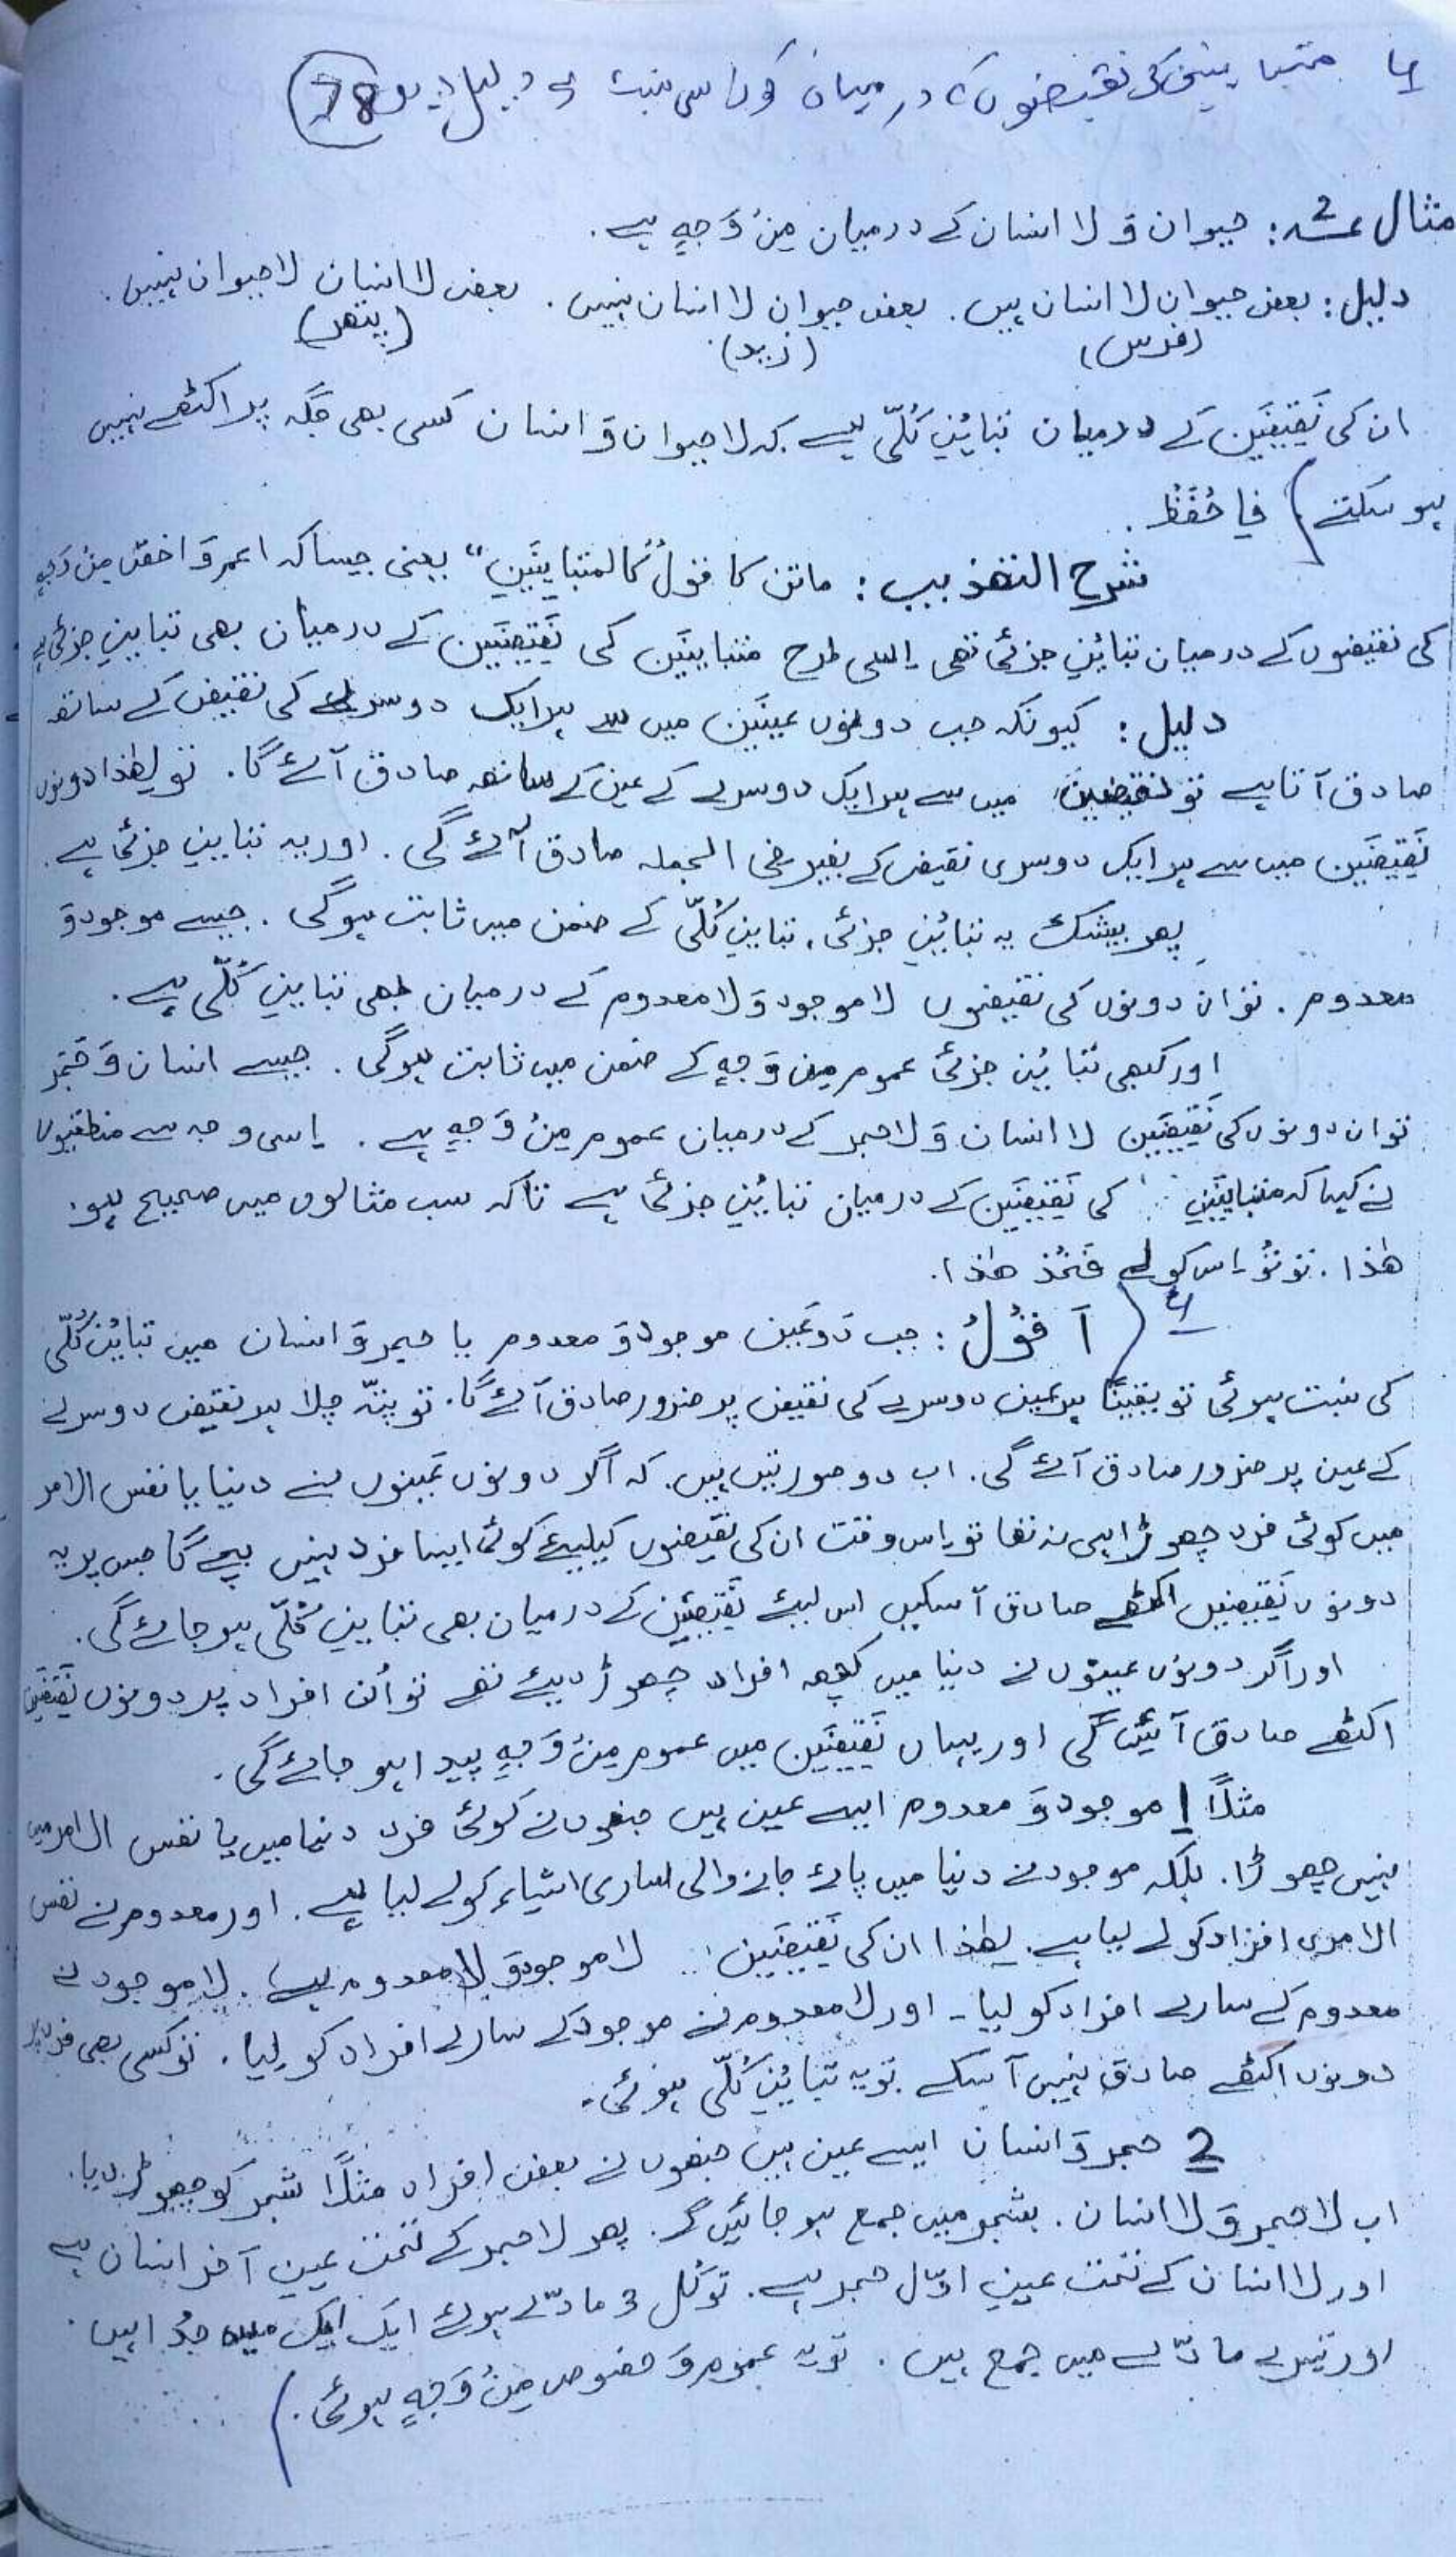 متباینین کی نقیضوں کے درمیان کون سی نسبت ہے دلیل دیں 78
مثال 2: حیوان وَ لا انسان کے درمیان مِنْ وَجہٍ ہے.
دلیل: بعض حیوان لا انسان ہیں. بعض حیوان لا انسان نہیں. بعض لا انسان لا حیوان نہیں.
(فرس) (زید) (پتھر)
ان کی نَقِیضَین کے درمیان تَبایُنِ کُلّی ہے کہ لا حیوان وَ انسان کسی بھی جگہ پر اکٹھے نہیں
ہو سکتے) فَاحْفَظْ.
شرح التھذیب: ماتن کا قول "کَالمتباینَینِ" یعنی جیسا کہ اعم وَ اخصّ مِنْ وَجہٍ
کی نقیضوں کے درمیان تبایُنِ جزئی تھی اِسی طرح متباینَین کی نَقِیضَین کے درمیان بھی تباینِ جزئی ہے
دلیل: کیونکہ جب دونوں عینَین میں سے ہر ایک دوسرے کی نقیض کے ساتھ
صادق آتا ہے تو نقیضین میں سے ہر ایک دوسرے کے عین کے ساتھ صادق آئے گا. تو لھٰذا دونوں
نَقِیضَین میں سے ہر ایک دوسری نقیض کے بغیر فی الجملہ صادق آئے گی. اور یہ تباینِ جزئی ہے.
پھر بیشک یہ تبایُنِ جزئی، تباینِ کُلّی کے ضمن میں ثابت ہوگی. جیسے موجود وَ
معدوم. تو ان دونوں کی نقیضوں لا موجود وَ لا معدوم کے درمیان بھی تباینِ کُلّی ہے.
اور کبھی تبایُنِ جزئی عموم مِن وَجہٍ کے ضمن میں ثابت ہوگی. جیسے انسان وَ حَجَر
تو ان دونوں کی نَقِیضَین لا انسان وَ لا حجر کے درمیان عموم مِنْ وَجہٍ ہے. اِسی وجہ سے منطقیوں
نے کہا کہ متباینَینِ کی نَقِیضَین کے درمیان تبایُنِ جزئی ہے تاکہ سب مثالوں میں صحیح ہو.
ھٰذا. تو تُو اِس کو لے فَخُذ ھٰذا.
(اَقُوْلُ: جب دو عَین موجود وَ معدوم یا حجر وَ انسان میں تبایُنِ کُلّی
کی نسبت ہوئی تو یقیناً ہر عین دوسرے کی نقیض پر ضرور صادق آئے گا. تو پتہ چلا ہر نقیض دوسرے
کے عین پر ضرور صادق آئے گی. اب دو صورتیں ہیں. کہ اگر دونوں عَینوں نے دنیا یا نفس الامر
میں کوئی فرد چھوڑا ہی نہ تھا تو اِس وقت ان کی نقیضوں کیلیئے کوئی ایسا فرد نہیں بچے گا جس پر یہ
دونوں نَقِیضیں اکٹھے صادق آ سکیں اس لیئے نَقِیضَین کے درمیان بھی تباینِ کُلّی ہو جائے گی.
اور اگر دونوں عینوں نے دنیا میں کچھ افراد چھوڑ دیئے تھے تو اُن افراد پر دونوں نَقِیضَین
اکٹھے صادق آئیں گی اور یہاں نَقِیضَین میں عموم مِنْ وَجہٍ پیدا ہو جائے گی.
مثلاً 1 موجود وَ معدوم ایسے عین ہیں جنھوں نے کوئی فرد دنیا میں یا نفس الامر میں
نہیں چھوڑا. بلکہ موجود نے دنیا میں پائے جانے والی ساری اشیاء کو لے لیا ہے. اور معدوم نے نفس
الامری افراد کو لے لیا ہے. لھٰذا ان کی نَقِیضَین لا موجود وَ لا معدوم ہے. لا موجود نے
معدوم کے سارے افراد کو لیا۔ اور لا معدوم نے موجود کے سارے افراد کو لیا. تو کسی بھی فرد پر
دونوں اکٹھے صادق نہیں آ سکے تو یہ تبایُنِ کُلّی ہوئی۔
2 حجر وَ انسان ایسے عین ہیں جنھوں نے بعض افراد مثلاً شجر کو چھوڑ دیا.
اب لا حجر وَ لا انسان. شجر میں جمع ہو جائیں گے. پھر لا حجر کے تحت عینِ آخر انسان ہے
اور لا انسان کے تحت عینِ اوّل حجر ہے. تو کُل 3 مادّے ہوئے ایک ایک میں جُدا ہیں.
اور تیسرے مادّے میں جمع ہیں. تو یہ عموم وَ خصوص مِنْ وَجہٍ ہوئی.)